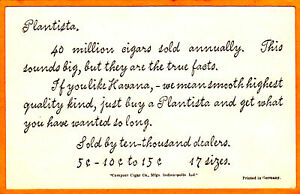 Plantista.
40 million cigars sold annually. This
sounds big, but they are the true facts.
If you like Havana, - we mean smooth highest
quality kind, just buy a Plantista and get what
you have wanted so long.
Sold by ten-thousand dealers.
5¢ - 10¢ to 15¢ 17 sizes.
Cigar Co., Mfgs. Indianapolis Ind.
Printed in Germany.